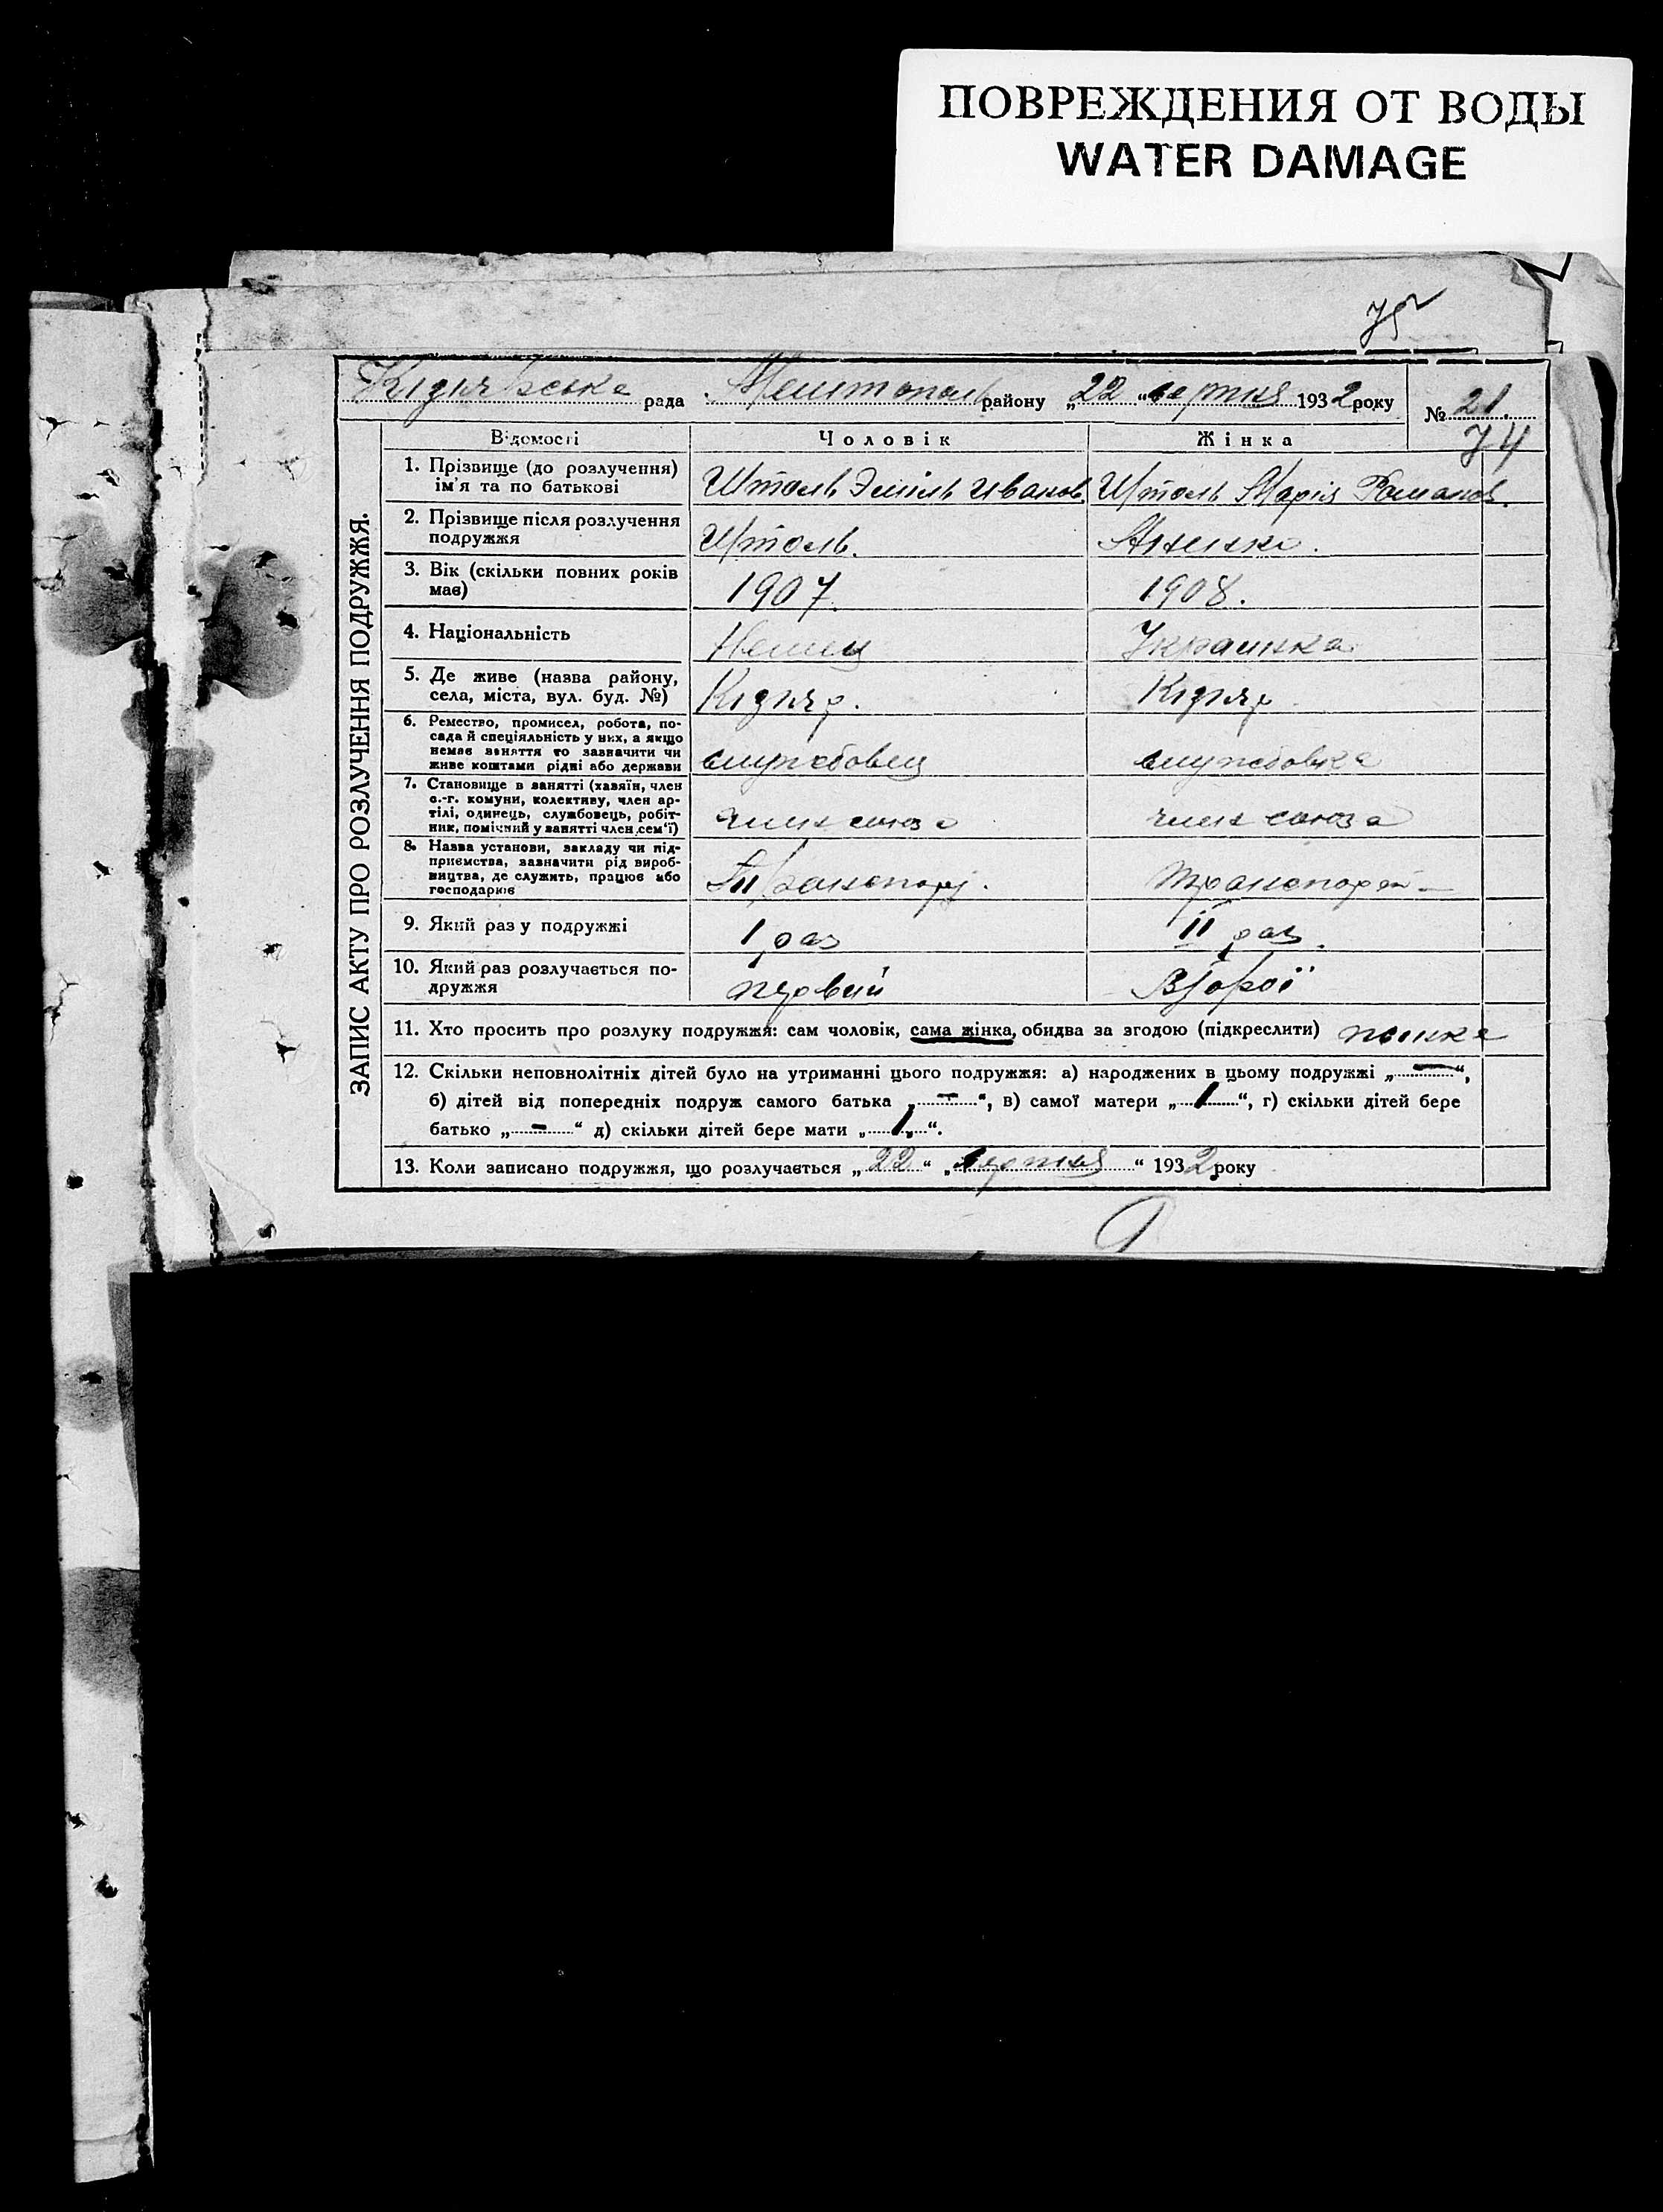 ПОВРЕЖДЕНИЯ ОТ ВОДЫ
WATER DAMAGE
75
ЗАПИС АКТУ ПРО РОЗЛУЧЕННЯ ПОДРУЖЖЯ.
рада района „22“ серпня 1932 року № 21.
74
Відомості Чоловік Жінка
1. Прізвище (до розлучення)
ім'я та по батькові
Штоль Эміль Иванов Штоль Марія Романов.
2. Прізвище після розлучення
подружжя
Штоль.
3. Вік (скільки повних років
має)
1907. 1908.
4. Національність
Немец Украинка
5. Де живе (назва району,
села, міста, вул. буд. №)
Кізияр. Кізияр
6. Ремество, промисел, робота, по-
сада й спеціяльність у них, а якщо
немає заняття то зазначити чи
живе коштами рідні або держави
службовец службовка
7. Становище в занятті (хазяїн, член
с.-г. комуни, колективу, член ар-
тілі, одинець, службовець, робіт-
ник, помічний у занятті член сем'ї)
член союза член союза
8. Назва установи, закладу чи під-
приємства, зазначити рід вироб-
ництва, де служить, працює або
господарює
9. Який раз у подружжі
I раз II раз.
10. Який раз розлучається по-
дружжя
первий Второї
11. Хто просить про розлуку подружжя: сам чоловік, сама жінка, обидва за згодою (підкреслити)
12. Скільки неповнолітніх дітей було на утриманні цього подружжя: а) народжених в цьому подружжі „—“,
б) дітей від попередніх подруж самого батька „—“, в) самої матери „1“, г) скільки дітей бере
батько „-“ д) скільки дітей бере мати „1“.
13. Коли записано подружжя, що розлучається „22“ „серпня“ 1932 року